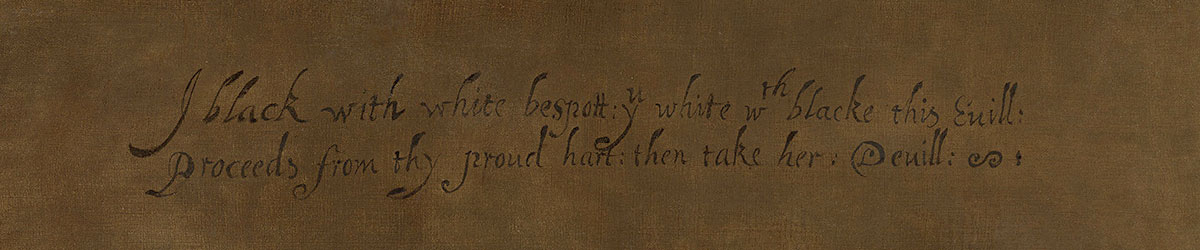 I black with white bespott: yᵘ white wᵗʰ blacke this Euill:
Proceeds from thy proud hart: then take her: Deuill: